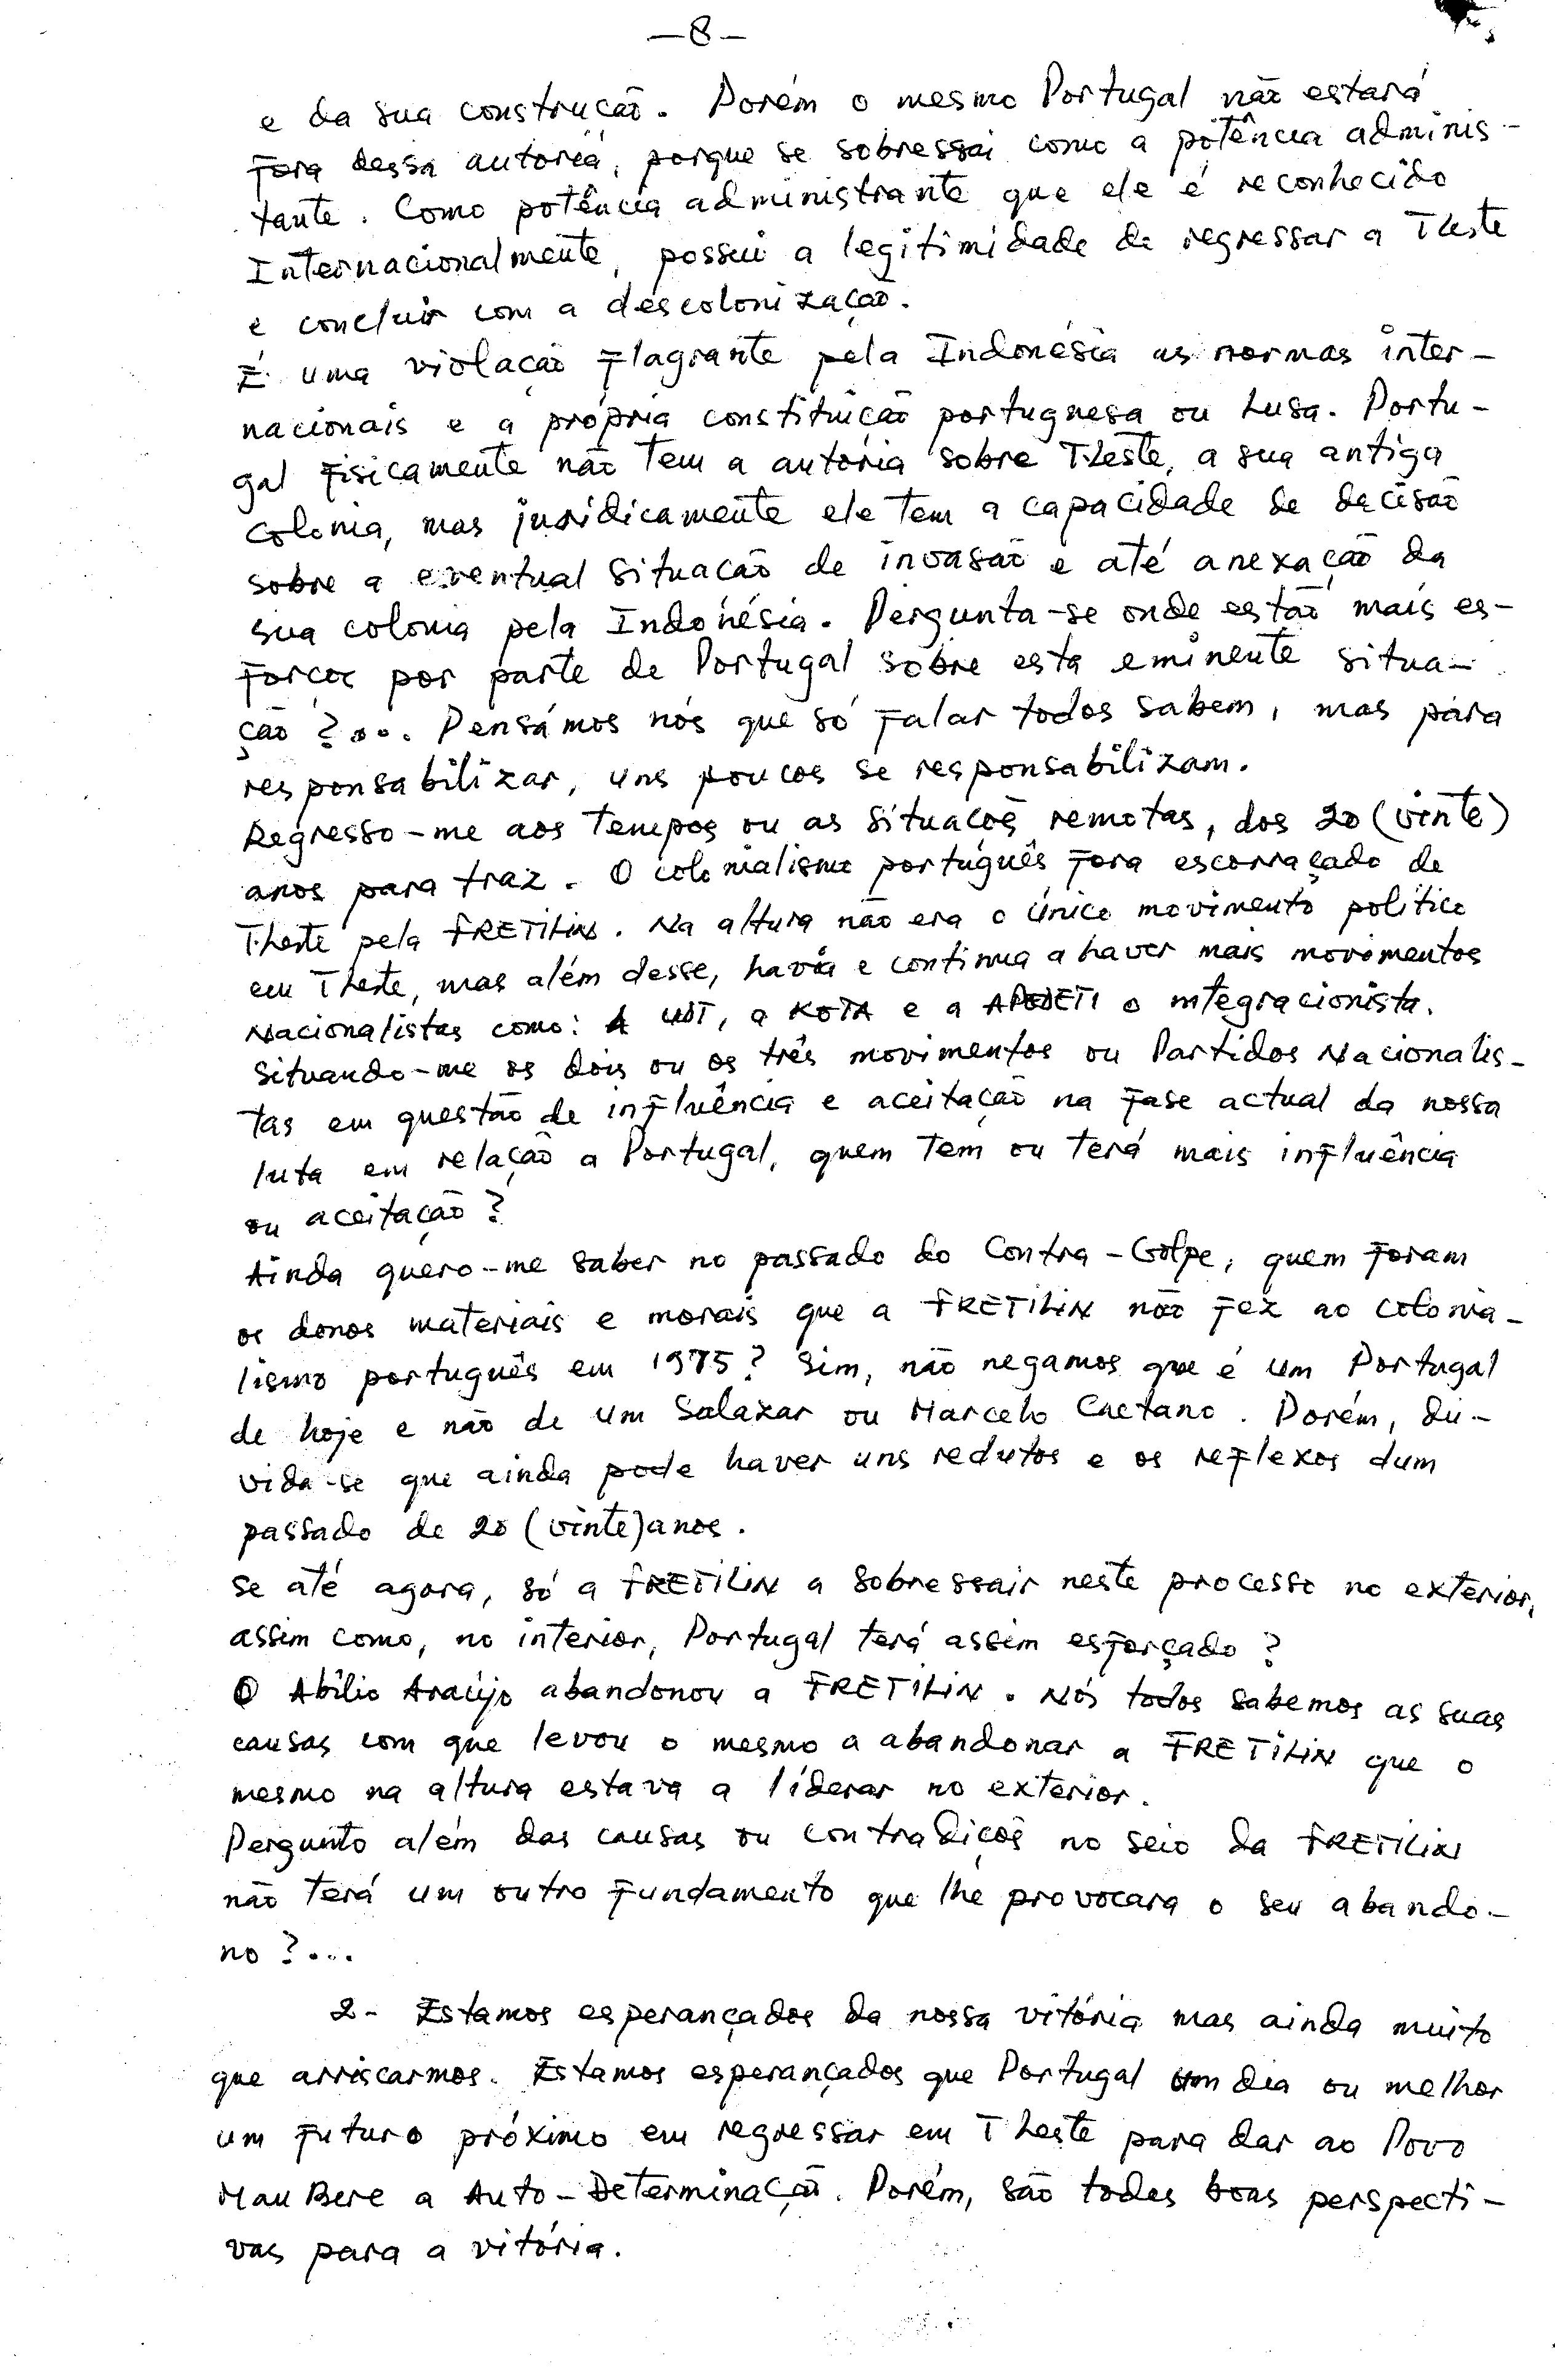 —8—
e da sua construção. Porém o mesmo Portugal não estará
fora dessa autoria, porque se sobressai como a potência adminis-
tante. Como potência administrante que ele é reconhecido
Internacionalmente, possui a legitimidade de regressar a TLeste
e concluir com a descolonização.
É uma violação flagrante pela Indonésia as normas inter-
nacionais e a própria constituição portuguesa ou Lusa. Portu-
gal fisicamente não tem a autória sobre TLeste, a sua antiga
colonia, mas juridicamente ele tem a capacidade de decisão
sobre a eventual situação de invasão e até anexação da
sua colonia pela Indonésia. Pergunta-se onde estão mais es-
forços por parte de Portugal sobre esta eminente situa-
ção?... Pensámos nós que só falar todos sabem, mas para
responsabilizar, uns poucos se responsabilizam.
Regresso-me aos tempos ou as situacões remotas, dos 20 (vinte)
anos para traz. O colonialismo português fora escorraçado de
TLeste pela FRETILIN. Na altura não era o único movimento politico
em TLeste, mas além desse, havia e continua a haver mais movimentos
Nacionalistas como: A UDT, a KOTA e a APODETI o integracionista.
Situando-me os dois ou os três movimentos ou Partidos Nacionalis-
tas em questão de influência e aceitação na fase actual da nossa
luta em relação a Portugal, quem tem ou terá mais influência
ou aceitação?
Ainda quero-me saber no passado do Contra-Golpe, quem foram
os donos materiais e morais que a FRETILIN não fez ao colonia-
lismo português em 1975? Sim, não negamos que é um Portugal
de hoje e não de um Salazar ou Marcelo Caetano. Porém, du-
vida-se que ainda pode haver uns redutos e os reflexos dum
passado de 20 (vinte) anos.
Se até agora, só a FRETILIN a sobressair neste processo no exterior,
assim como, no interior, Portugal terá assim esforçado?
O Abílio Araújo abandonou a FRETILIN. Nós todos sabemos as suas
causas com que levou o mesmo a abandonar a FRETILIN que o
mesmo na altura estava a liderar no exterior.
Pergunto além das causas ou contradições no seio da FRETILIN
não terá um outro fundamento que lhe provocara o seu abando-
no?...
2- Estamos esperançados da nossa vitória mas ainda muito
que arriscarmos. Estamos esperançados que Portugal um dia ou melhor
um futuro próximo em regressar em TLeste para dar ao Povo
MauBere a Auto-Determinação. Porém, são todas boas perspecti-
vas para a vitória.